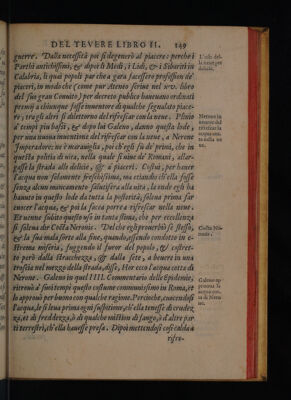 DEL TEVERE LIBRO II. 149
guerre. Dalla necessità poi si degenerò al piacere: perche i
Parthi antichissimi, & dopò li Medi, i Lidi, & i Sibariti in
Calabria, li quai popoli par che a gara facessero professione de'
piaceri, in modo che ( come pur Ateneo scrive nel XII. libro
del suo gran Convito) per decreto publico havevano ordinati
premij a chiunque fusse inventore di qualche segnalato piace-
re; tra gli altri si dilettorno del rifrescar con la neve. Plinio
a' tempi piu bassi, & dopò lui Galeno, danno questa lode,
per una nuova inventione del rifrescar con la neve, a Nerone
Imperadore: ne è maraviglia, poi ch'egli fù de' primi, che in
questa politia di vita, nella quale si vive da' Romani, allar-
gasse la strada alle delicie, & a' piaceri.
l'acqua non solamente freschissima, ma
senza alcun mancamento salutifera alla vita; la onde egli ha
havere in questo lode da tutta la posterità, soleva prima far
cuocer l'acqua, & poi la faceva porre a rifrescar nella neve.
Et venne subito questo uso in tanta stima, che per eccellenza
si soleva dir Cotta Neronis. Del che egli proverbiò se stesso,
& la sua mala sorte alla fine, quando, essendo condotto in e-
strema miseria, fuggendo il furor del popolo, & costretto
però dalla stracchezza, & dalla sete, a bevere in una
nel mezzo della strada, disse, Hec est acqua cotta di
Nerone. Galeno in quel IIII. Commentario delle Epidemie,
ritrovò a' suoi tempi questo costume communissimo in Roma, et
lo approvò per buono con qualche ragione. Percioche, cuocendosi
l'acqua, le si leva prima ogni suspitione, ch'ella tenesse di crudez-
za, et di freddezza, ò di qualche mistion di fango, ò d'altre par
ti terrestri, ch'ella havesse presa. Dipoi mettendosi così calda à
rifre-
L'uso del-
la neve per
delitie.
Nerone in
ventor del
rifrescar l'a
acqua cot-
ta nella ne
ve.
Cotta Ne-
ronis.
Galeno ap
prova la
acqua cot-
ta di Nero
ne.